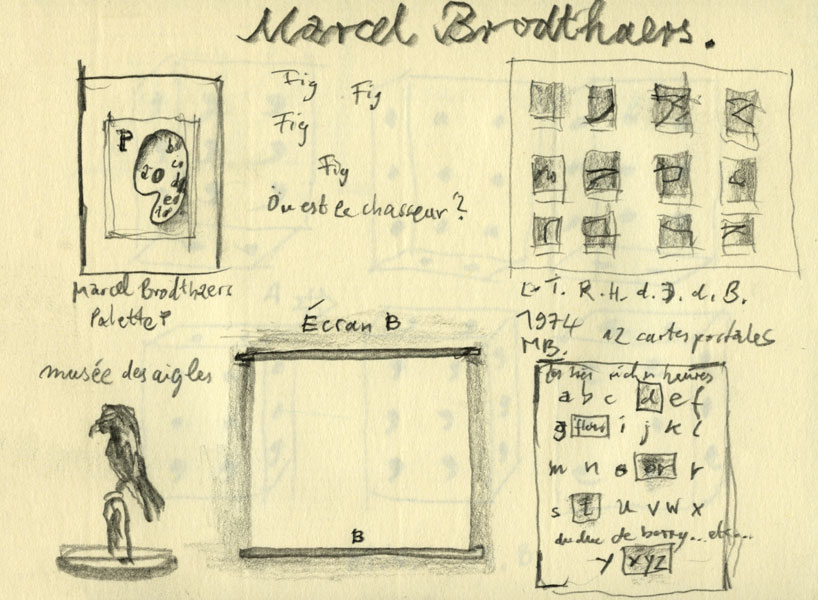 Marcel Brodthaers.
Fig
Fig
Fig
Fig
Où est le chasseur?
P
Marcel Brodthaers
Palette P
L. T. R. H. d. J. d. B.
1974
MB.
12 cartes postales
Écran B
B
musée des aigles
les très riches heures
a b c d e f
g fleur i j k l
m n o or r
s t u v w x
du duc de berry...etc...
y xyz